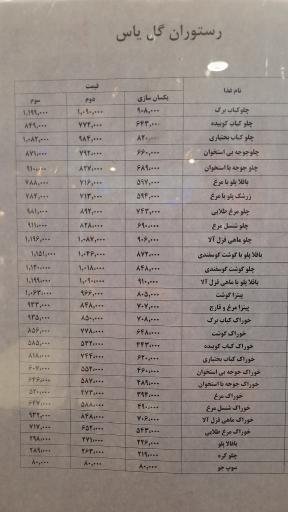 رستوران گل یاس
نام غذا قیمت
یکسان سازی دوم سوم
چلوکباب برگ ۹۰۸,۰۰۰ ۱,۰۹۰,۰۰۰ ۱,۱۹۹,۰۰۰
چلو کباب کوبیده ۶۴۳,۰۰۰ ۷۷۲,۰۰۰ ۸۴۹,۰۰۰
چلو کباب بختیاری ۸۲۰,۰۰۰ ۹۸۴,۰۰۰ ۱,۰۸۲,۰۰۰
چلوجوجه بی استخوان ۶۶۰,۰۰۰ ۷۹۲,۰۰۰ ۸۷۱,۰۰۰
چلو جوجه با استخوان ۶۸۹,۰۰۰ ۸۲۷,۰۰۰ ۹۱۰,۰۰۰
باقلا پلو با مرغ ۵۹۷,۰۰۰ ۷۱۶,۰۰۰ ۷۸۸,۰۰۰
زرشک پلو با مرغ ۵۹۴,۰۰۰ ۷۱۳,۰۰۰ ۷۸۴,۰۰۰
چلو مرغ طلایی ۷۴۳,۰۰۰ ۸۹۲,۰۰۰ ۹۸۱,۰۰۰
چلو شنسل مرغ ۶۹۰,۰۰۰ ۸۲۸,۰۰۰ ۹۱۱,۰۰۰
چلو ماهی قزل آلا ۹۰۶,۰۰۰ ۱,۰۸۷,۰۰۰ ۱,۱۹۶,۰۰۰
باقلا پلو با گوشت گوسفندی ۸۷۲,۰۰۰ ۱,۰۴۶,۰۰۰ ۱,۱۵۱,۰۰۰
چلو گوشت گوسفندی ۸۴۸,۰۰۰ ۱,۰۱۸,۰۰۰ ۱,۱۲۰,۰۰۰
باقلا پلو با ماهی قزل آلا ۹۱۰,۰۰۰ ۱,۰۹۰,۰۰۰ ۱,۱۹۹,۰۰۰
پیتزا گوشت ۸۰۵,۰۰۰ ۹۶۶,۰۰۰ ۱,۰۶۲,۰۰۰
پیتزا مرغ و قارچ ۷۰۷,۰۰۰ ۸۴۸,۰۰۰ ۹۳۳,۰۰۰
خوراک کباب برگ ۷۰۸,۰۰۰ ۸۵۰,۰۰۰ ۹۳۵,۰۰۰
خوراک گوشت ۶۴۸,۰۰۰ ۷۷۸,۰۰۰ ۸۵۶,۰۰۰
خوراک کباب کوبیده ۴۴۳,۰۰۰ ۵۳۲,۰۰۰ ۵۸۵,۰۰۰
خوراک کباب بختیاری ۶۲۰,۰۰۰ ۷۴۴,۰۰۰ ۸۱۸,۰۰۰
خوراک جوجه بی استخوان ۴۶۰,۰۰۰ ۵۵۲,۰۰۰ ۶۰۷,۰۰۰
خوراک جوجه بااستخوان ۴۸۹,۰۰۰ ۵۸۷,۰۰۰ ۶۴۶,۰۰۰
خوراک مرغ ۳۹۴,۰۰۰ ۴۷۳,۰۰۰ ۵۲۰,۰۰۰
خوراک شنسل مرغ ۴۹۰,۰۰۰ ۵۸۸,۰۰۰ ۶۴۷,۰۰۰
خوراک ماهی قزل آلا ۷۰۶,۰۰۰ ۸۴۸,۰۰۰ ۹۳۲,۰۰۰
خوراک مرغ طلایی ۵۴۳,۰۰۰ ۶۵۲,۰۰۰ ۷۱۷,۰۰۰
باقالا پلو ۲۲۶,۰۰۰ ۲۷۱,۰۰۰ ۲۹۸,۰۰۰
چلو کره ۲۱۹,۰۰۰ ۲۶۳,۰۰۰ ۲۸۹,۰۰۰
سوپ جو ۸۰,۰۰۰ ۸۰,۰۰۰ ۸۰,۰۰۰